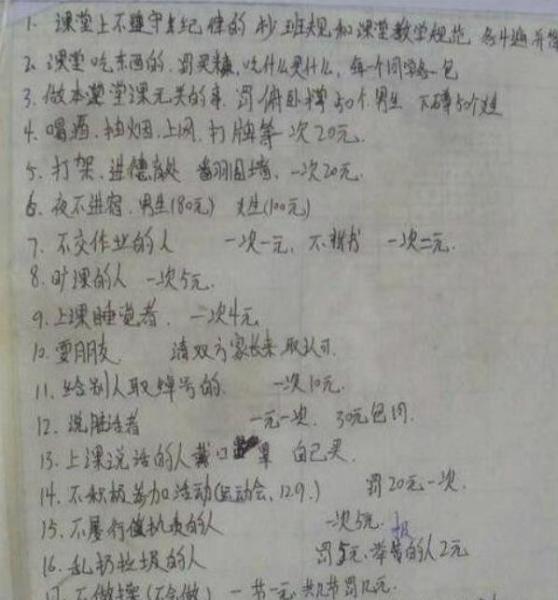 1. 课堂上不遵守纪律的 抄班规和课堂教学规范 各4遍
2. 课堂吃东西的 罚买糖,吃什么买什么,每个同学各一包
3. 做本堂课无关的事 罚俯卧撑50个男生 下蹲50个
4. 喝酒、抽烟、上网、打牌等一次20元.
5. 打架、进德育处 翻围墙、一次20元.
6. 夜不进宿. 男生(80元) 女生(100元)
7. 不交作业的人 一次一元、不 书 一次二元.
8. 旷课的人 一次5元.
9. 上课睡觉者. 一次4元
10. 耍朋友 请双方家长来 取认可.
11. 给别人取绰号的. 一次10元.
12. 说脏话者 一元一次. 30元包月.
13. 上课说话的人戴口罩 自己买.
14. 不积极参加活动(运动会、129.) 罚20元一次.
15. 不履行值机责的人 一次5元.
16. 乱扔垃圾的人 罚5元、举报的人2元
17. 不做操(不会做) 一节一元 共几节罚几元.